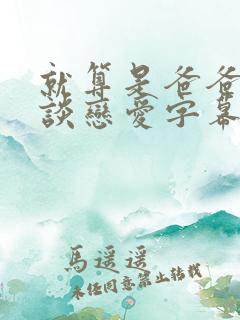 就算是爸爸
談戀愛字幕
馬遥遥
未經同意禁止轉載